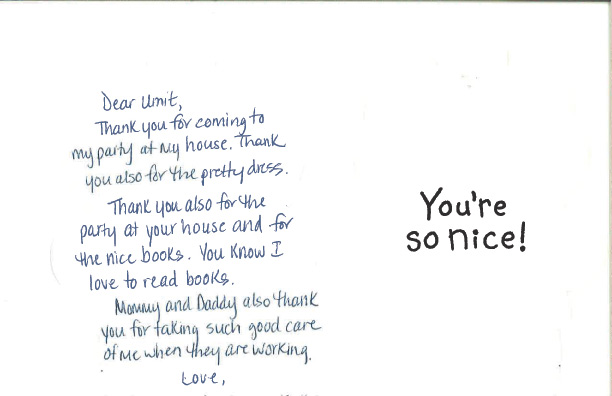 Dear Umit,
Thank you for coming to
my party at my house. Thank
you also for the pretty dress.
Thank you also for the
party at your house and for
the nice books. You know I
love to read books.
Mommy and Daddy also thank
you for taking such good care
of me when they are working.
Love,
You're
so nice!